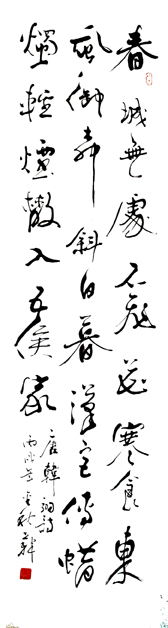 春城無處不飛花寒食東
風御柳斜日暮漢宮傳蜡
燭輕煙散入五侯家
唐韓翃詩